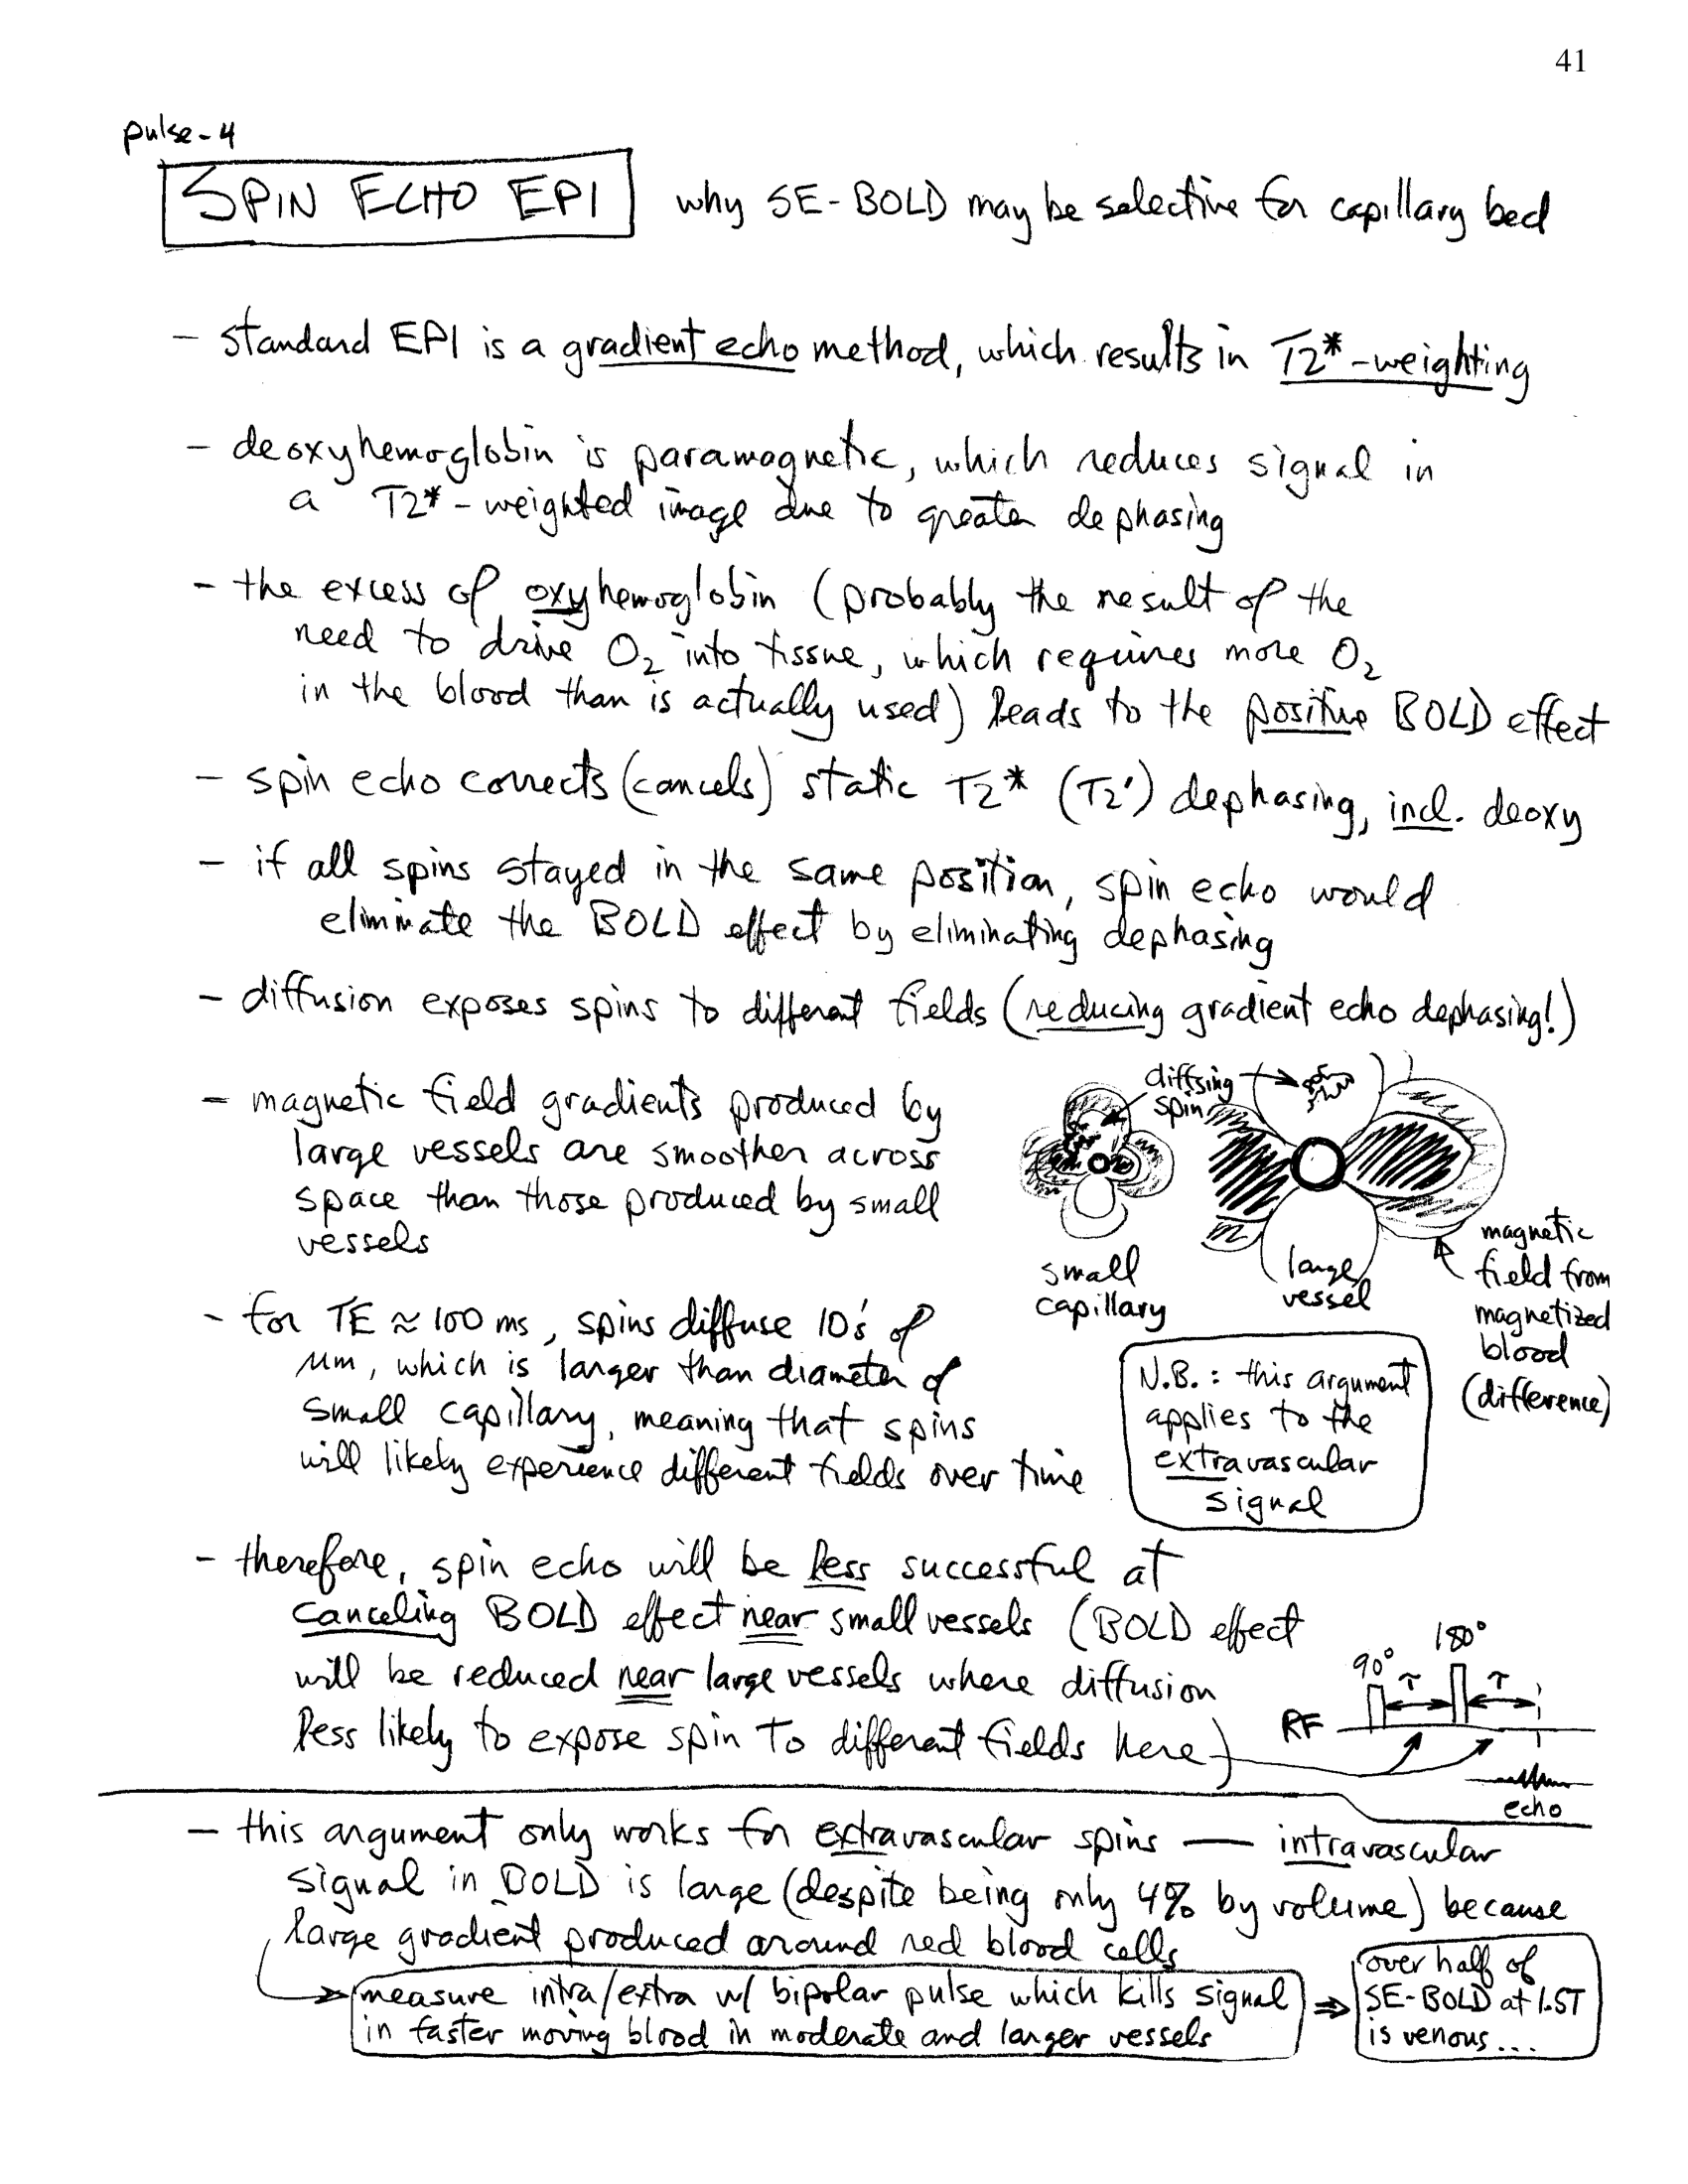 41
pulse-4
SPIN ECHO EPI why SE-BOLD may be selective for capillary bed
- standard EPI is a gradient echo method, which results in T2*-weighting
- deoxyhemoglobin is paramagnetic, which reduces signal in
a T2*-weighted image due to greater dephasing
- the excess of oxyhemoglobin (probably the result of the
need to drive O2 into tissue, which requires more O2
in the blood than is actually used) leads to the positive BOLD effect
- spin echo corrects (cancels) static T2* (T2') dephasing, incl. deoxy
- if all spins stayed in the same position, spin echo would
eliminate the BOLD effect by eliminating dephasing
- diffusion exposes spins to different fields (reducing gradient echo dephasing!)
- magnetic field gradients produced by
large vessels are smoother across
space than those produced by small
vessels
diffsing
spin
small
capillary
large
vessel
magnetic
field from
magnetized
blood
(difference)
- for TE ≈ 100 ms, spins diffuse 10's of
µm, which is larger than diameter of
small capillary, meaning that spins
will likely experience different fields over time
N.B.: this argument
applies to the
extravascular
signal
- therefore, spin echo will be less successful at
canceling BOLD effect near small vessels (BOLD effect
will be reduced near large vessels where diffusion
less likely to expose spin to different fields here)
90° 180°
τ τ
RF
echo
- this argument only works for extravascular spins — intravascular
signal in BOLD is large (despite being only 4% by volume) because
large gradient produced around red blood cells
→ measure intra/extra w/ bipolar pulse which kills signal
in faster moving blood in moderate and larger vessels
⇒ over half of
SE-BOLD at 1.5T
is venous...